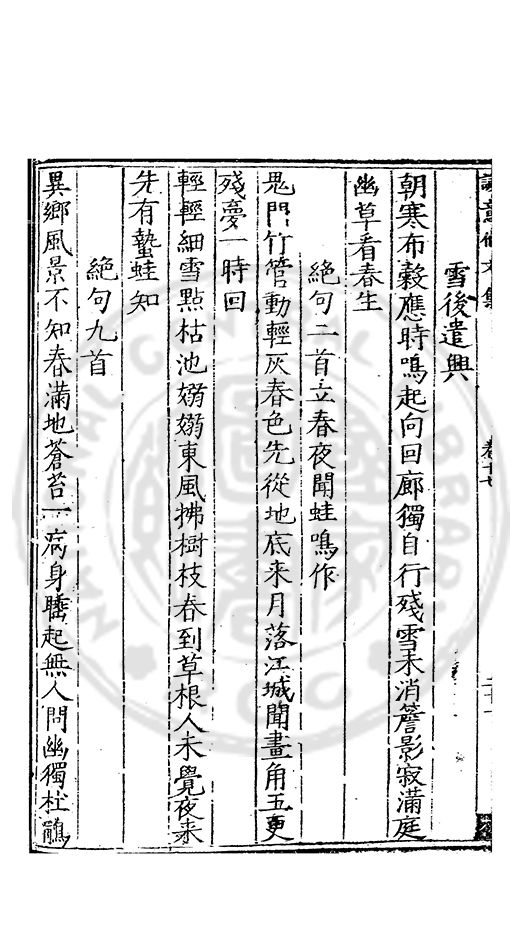 誠意伯文集 卷十七
雪後遣興
朝寒布穀應時鳴起向回廊獨自行殘雪未消簷影寂滿庭
幽草看春生
絕句二首立春夜聞蛙鳴作
鬼門竹管動輕灰春色先從地底来月落江城聞畫角五更
殘夢一時回
輕輕細雪點枯池嫋嫋東風拂樹枝春到草根人未覺夜来
先有蟄蛙知
絕句九首
異鄉風景不知春滿地蒼苔一病身睡起無人問幽獨杜鵑